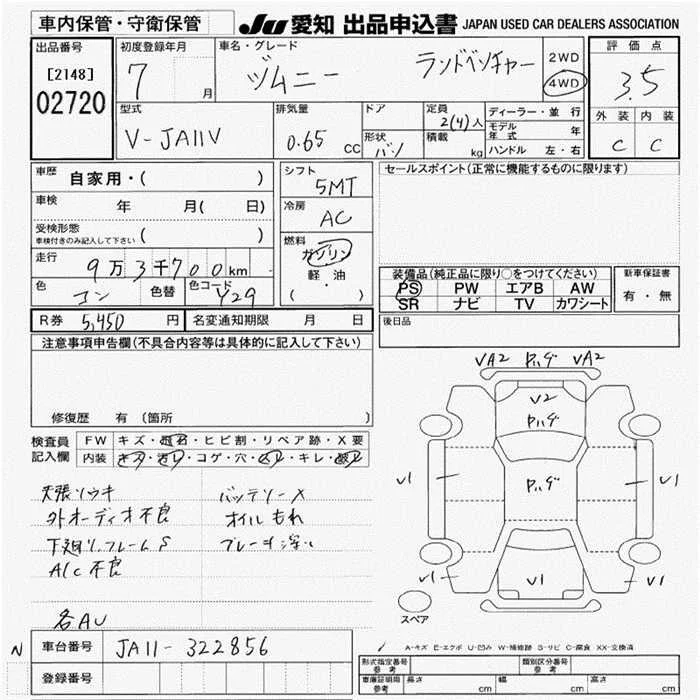 車内保管・守衛保管 JU 愛知 出品申込書 JAPAN USED CAR DEALERS ASSOCIATION
出品番号 初度登録年月 車名・グレード 評価点
[2148] 7 月 ヅムニー ランドベンチャー 2WD 4WD 3.5
02720
型式 排気量 ドア 定員 ディーラー・並行 外装 内装
V-JA11V 0.65 CC 2(4)人 モデル年式 年 C C
形状 バン 積載 kg ハンドル 左・右
車歴 自家用・( ) シフト 5MT セールスポイント(正常に機能するものに限ります)
車検 年 月( 日) 冷房 AC
受検形態 ( )
車検付きのみ記入して下さい
燃料 ガソリン
走行 9万3千700km 軽・油
( ・ )
装備品(純正品に限り○をつけてください) 新車保証書
色 コン 色替 色コード Y29 PS PW エアB AW 有・無
SR ナビ TV カワシート
R券 5,450 円 名変通知期限 月 日 後日品
注意事項申告欄(不具合内容等は具体的に記入して下さい)
修復歴 有 (箇所 )
VA2 ハゲ VA2
V2
ハゲ
ハゲ
V1 V1
V1 V1 V1
スペア
検査員記入欄 FW キズ・飛石・ヒビ割・リペア跡・X要
内装 キズ・汚レ・コゲ・穴・ ・キレ・
天張ソウキ バッテリーX
外オーディオ不良 オイルもれ
下廻り、フレームS ブレーキ深い
A/C不良
各AU
N 車台番号 JA11-322856
登録番号
A-キズ E-エクボ U-凹み W-補修跡 S-サビ C-腐食 XX-交換済
形式指定番号 参考 類別区分番号 参考
車庫証明用 参考 長さ cm 幅 cm 高さ cm